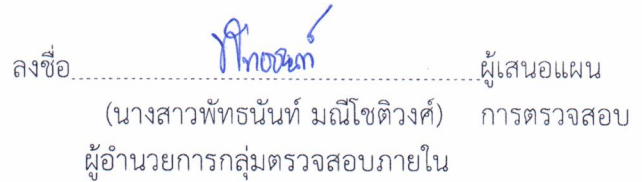 ลงชื่อ ผู้เสนอแผน
(นางสาวพัทธนันท์ มณีโชติวงศ์) การตรวจสอบ
ผู้อำนวยการกลุ่มตรวจสอบภายใน